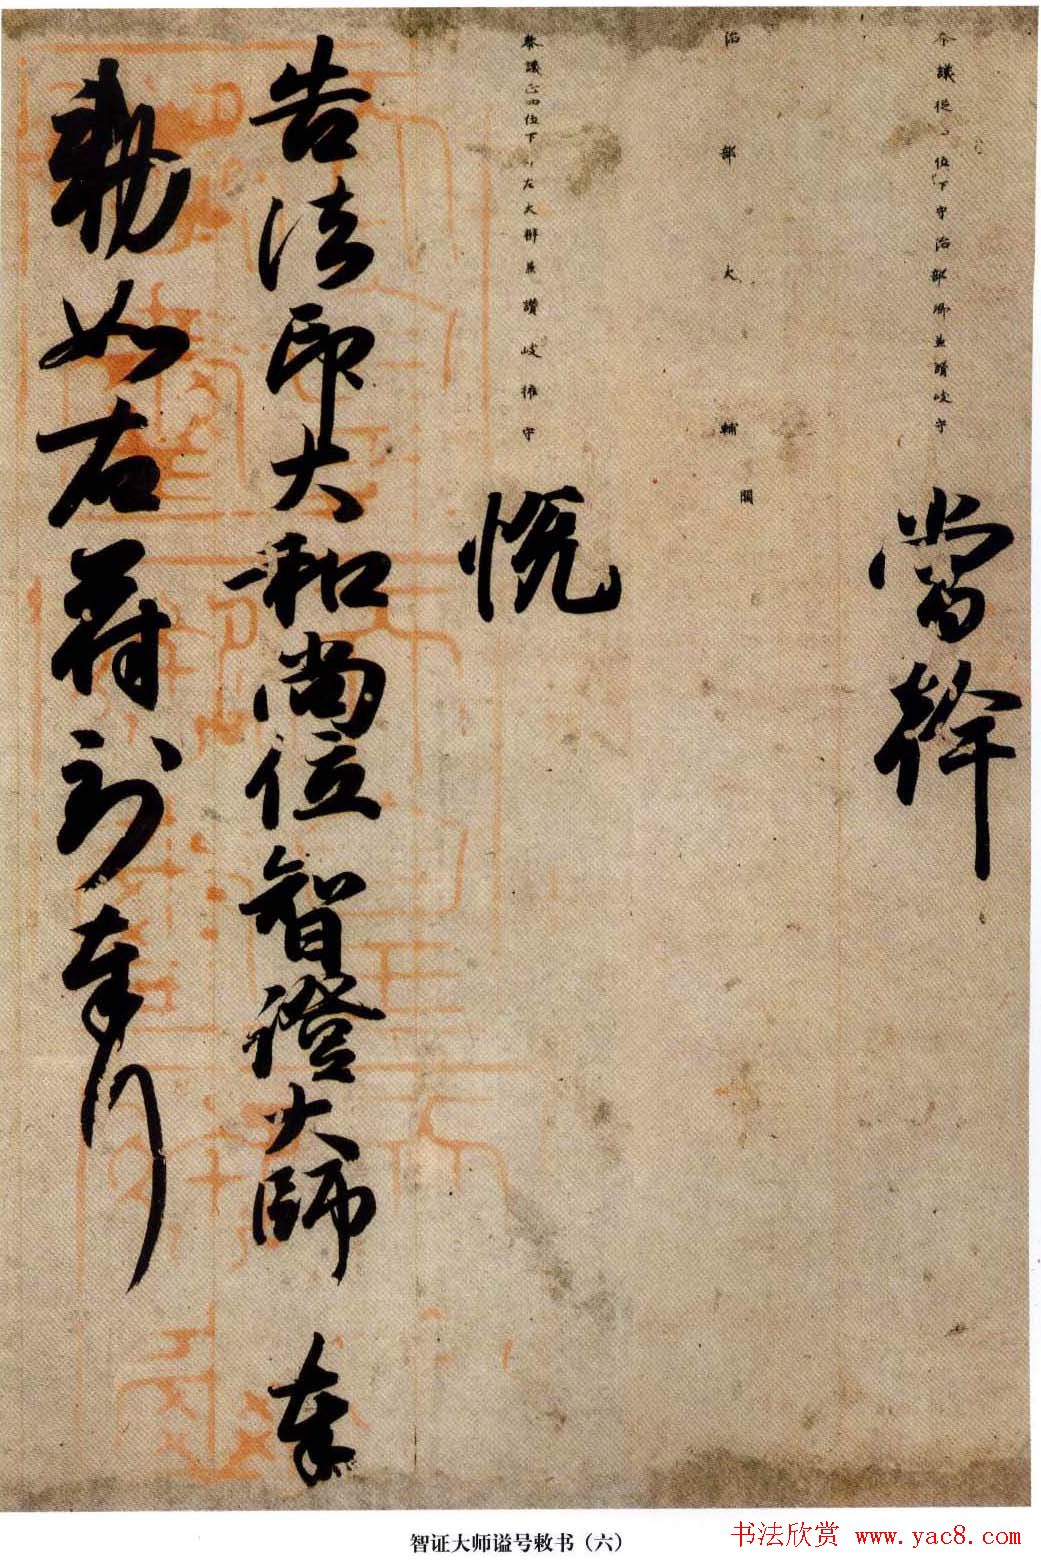 參議從位下守治部卿兼讃岐守 當幹
治部大輔 闕
參議正四位下左大辨兼讃岐権守 悦
告法印大和尚位智證大師 奉
勅如右符到奉行
智证大师谥号敕书（六）
书法欣赏 www.yac8.com